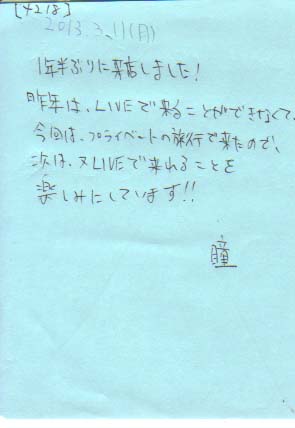 [4218]
2013.3.11(月)
1年半ぶりに来店しました!
昨年は、LIVEで来ることができなくて、
今回は、プライベートの旅行で来たので、
次は、又LIVEで来れることを
楽しみにしています!!
瞳